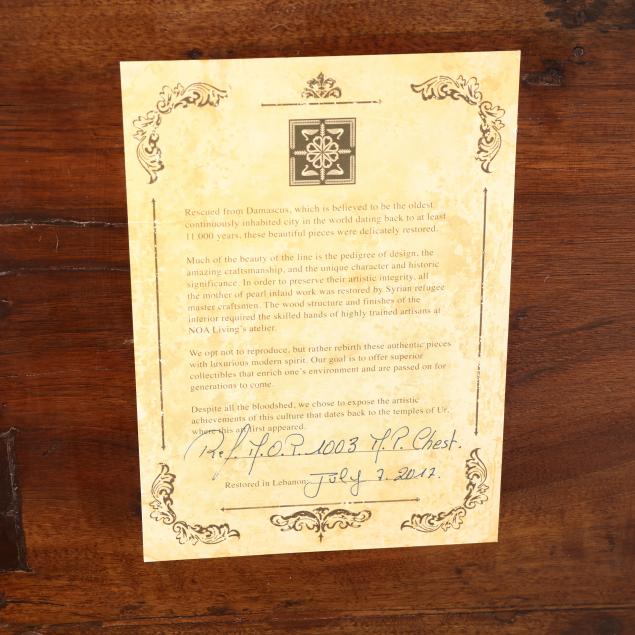 Rescued from Damascus, which is believed to be the oldest
continuously inhabited city in the world dating back to at least
11 000 years, these beautiful pieces were delicately restored.
Much of the beauty of the line is the pedigree of design, the
amazing craftsmanship, and the unique character and historic
significance. In order to preserve their artistic integrity, all
the mother of pearl inlaid work was restored by Syrian refugee
master craftsmen. The wood structure and finishes of the
interior required the skilled hands of highly trained artisans at
NOA Living's atelier.
We opt not to reproduce, but rather rebirth these authentic pieces
with luxurious modern spirit. Our goal is to offer superior
collectibles that enrich one's environment and are passed on for
generations to come.
Despite all the bloodshed, we chose to expose the artistic
achievements of this culture that dates back to the temples of Ur,
where this art first appeared.
Ref. M.O.P. 1003 M.P. Chest.
Restored in Lebanon: July 7. 2017.